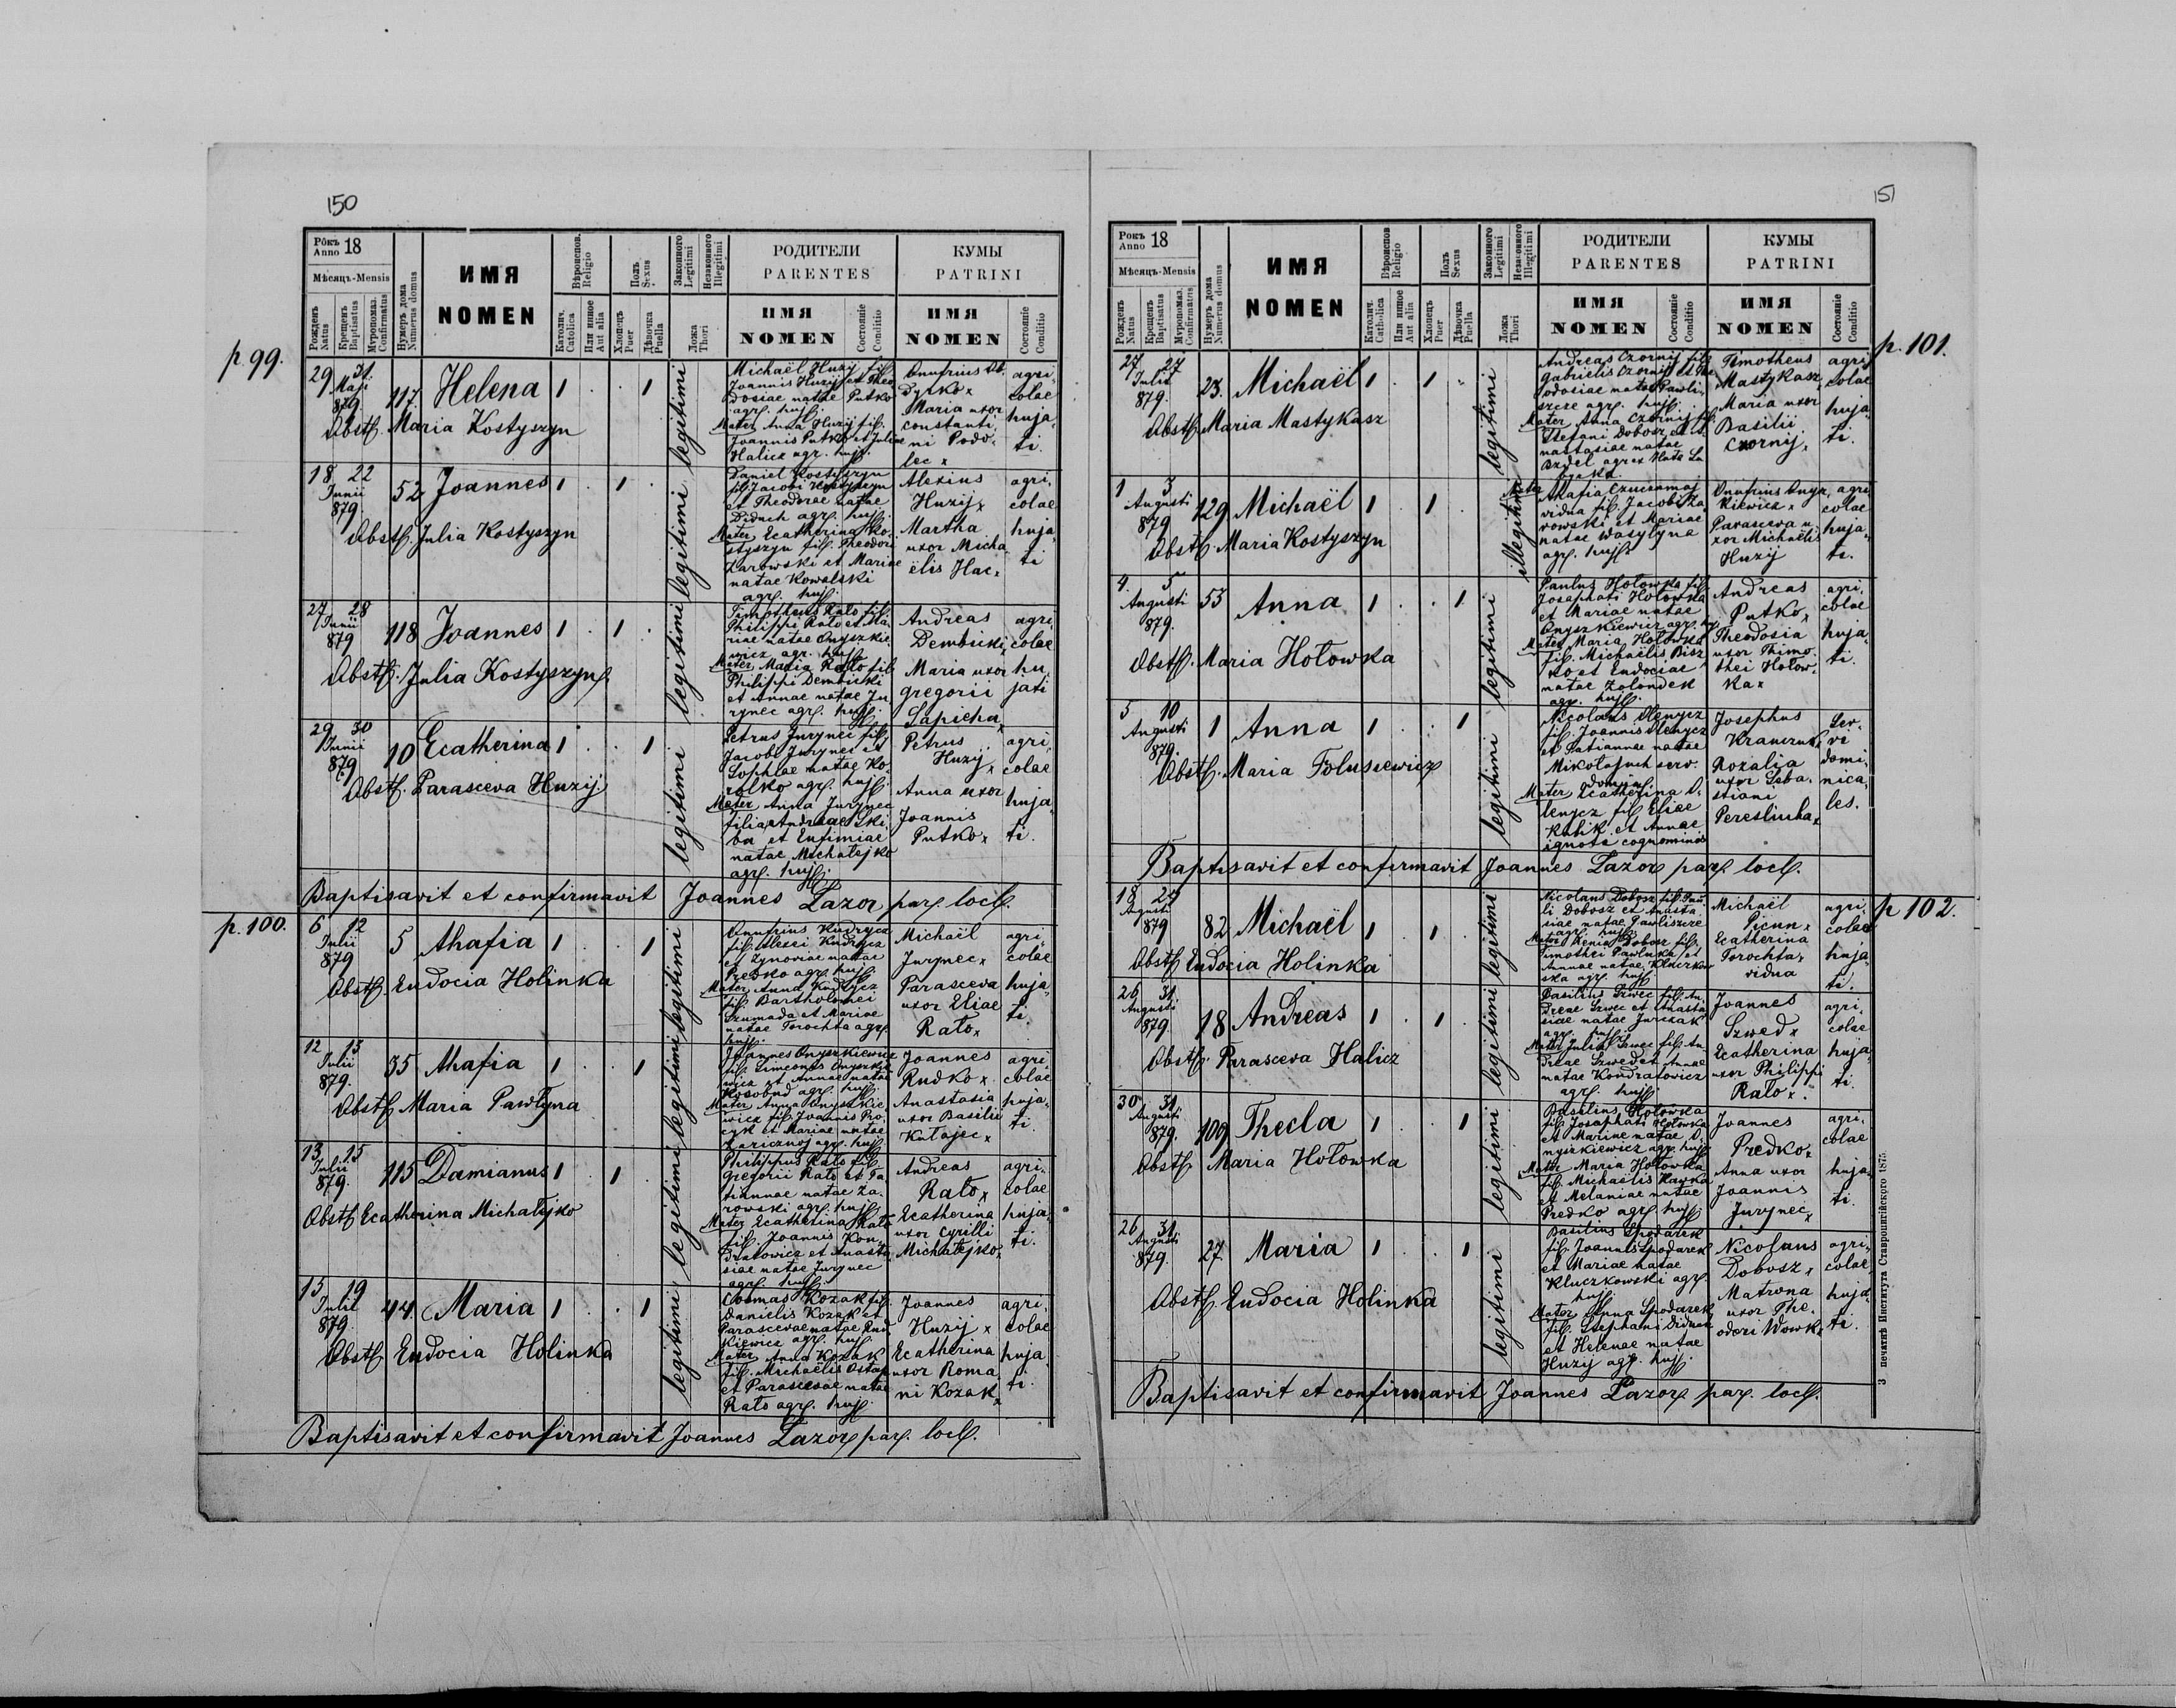 150
p. 99.
Рôкъ Anno 18
Мѣсяцъ-Mensis
Рожденъ Natus
Крещенъ Baptisatus
Мѵропомаз. Confirmatus
Нумеръ дома Numerus domus
ИМЯ
NOMEN
Вѣроиспов. Religio
Католич. Catolica
Или инное Aut alia
Полъ Sexus
Хлопецъ Puer
Дѣвочка Puella
Законного Legitimi
Незаконного Illegitimi
Ложа Thori
РОДИТЕЛИ
PARENTES
ИМЯ
NOMEN
Состояніе Conditio
КУМЫ
PATRINI
ИМЯ
NOMEN
Состояніе Conditio
29 31 Maji 879 117 Helena 1 . . 1 legitimi
Obst. Maria Kostyszyn
Michaël Huzij fil.
Joannis Huzij et Theo
dosiae natae Putko
agr. huj.
Mater Anna Huzij fil.
Joannis Putko et Juliae
Halicz agr. huj.
Onufrius
Dyrko x
Maria uxor
constanti
ni Podo
lec x
agri
colae
huja
ti.
18 22 Junii 879 52 Joannes 1 . 1 . legitimi
Obst. Julia Kostyszyn
Daniel Kostyszyn
fil. Jacobi Kostyszyn
et Theodorae natae
Diduch agr. huj.
Mater Ecatherina Ko
styszyn fil. Theodori
Zarowski et Mariae
natae Kowalski
agr. huj.
Alexius
Huzij x
Martha
uxor Micha
ëlis Hac x
agri
colae
huja
ti
27 28 Junii 879 118 Joannes 1 . 1 . legitimi
Obst. Julia Kostyszyn
Timotheus Rato fil.
Philippi Rato et Ma
riae natae Onyszkie
wicz agr. huj.
Mater Maria Rato fil.
Philippi Dembicki
et Annae natae Ju
rynec agr. huj.
Andreas
Dembicki x
Maria uxor
Gregorii
Sapicha x
agri
colae
hu
jati
29 30 Junii 879 10 Ecatherina 1 . . 1 legitimi
Obst. Parasceva Huzij
Petrus Jurynec fil.
Jacobi Jurynec et
Sophiae natae Ko
rolko agr. huj.
Mater Anna Jurynec
filia Andreae Ski
ba et Eufimiae
natae Michatejko
agr. huj.
Petrus
Huzij x
Anna uxor
Joannis
Putko x
agri
colae
huja
ti.
Baptisavit et confirmavit Joannes Lazor par. loc.
p. 100.
6 12 Julii 879 5 Ahafia 1 . . 1 legitimi
Obst. Eudocia Holinka
Onufrius Kudrycz
fil. Alexei Kudrycz
et Zynoviae natae
Predko agr. huj.
Mater Anna Kudrycz
fil. Bartholomei
Szumada et Mariae
natae Torochta agr.
huj.
Michaël
Jurynec x
Parasceva
uxor Eliae
Rato x
agri
colae
huja
ti.
12 13 Julii 879. 35 Ahafia 1 . . 1 legitimi
Obst. Maria Pawlyna
Joannes Onyszkiewicz
fil. Simeonis Onyszkie
wicz et Annae natae
Kosobud agr. huj.
Mater Anna Onyszkie
wicz fil. Joannis Pro
cyk et Mariae natae
Zaricznoj agr. huj.
Joannes
Rudko x
Anastasia
uxor Basilii
Kutajec x
agri
colae
huja
ti.
13 15 Julii 879. 115 Damianus 1 . 1 . legitimi
Obst. Ecatherina Michatejko
Philippus Rato fil.
Gregorii Rato et Ta
tiannae natae Za
rowski agr. huj.
Mater Ecatherina Rato
fil. Joannis Kon
dratowicz et Anasta
siae natae Jurynec
agr. huj.
Andreas
Rato x
Ecatherina
uxor Cyrilli
Michatejko x
agri
colae
huja
ti.
15 19 Julii 879 44 Maria 1 . . 1 legitimi
Obst. Eudocia Holinka
Cosmas Kozak fil.
Danielis Kozak et
Parascevae natae Rud
kiewicz agr. huj.
Mater Anna Kozak
fil. Michaëlis Ostap
et Parascevae natae
Rato agr. huj.
Joannes
Huzij x
Ecatherina
uxor Roma
ni Kozak x
agri
colae
huja
ti.
Baptisavit et confirmavit Joannes Lazor par. loc.
151
p. 101.
Рокъ Anno 18
Мѣсяцъ-Mensis
Рожденъ Natus
Крещенъ Baptisatus
Мѵропомаз. Confirmatus
Нумеръ дома Numerus domus
ИМЯ
NOMEN
Вѣроиспов Religio
Католич. Catholica
Или инное Aut alia
Полъ Sexus
Хлопецъ Puer
Дѣвочка Puella
Законного Legitimi
Незаконного Illegitimi
Ложа Thori
РОДИТЕЛИ
PARENTES
ИМЯ
NOMEN
Состояніе Conditio
КУМЫ
PATRINI
ИМЯ
NOMEN
Состояніе Conditio
27 27 Julii 879. 23. Michaël 1 . 1 . legitimi
Obst. Maria Mastykasz
Andreas Czornij fil.
Gabrielis Czornij et The
odosiae natae Pawli
szcze agr. huj.
Mater Anna Czornij fil.
Stefani Dobosz et A
nastasiae natae
Timotheus
Mastykasz x
Maria uxor
Basilii
Czornij x
agri
colae
huja
ti.
1 3 Augusti 879 129 Michaël 1 . 1 illegitimi
Obst. Maria Kostyszyn
Mater Ahafia Czuczmaj
vidua fil. Jacobi Za
rowski et Mariae
natae Wasylyna
agr. huj.
Onufrius Onysz
kiewicz x
Parasceva u
xor Michaëlis
Huzij
agri
colae
huja
ti.
4. 5 Augusti 879. 53 Anna 1 . . 1 legitimi
Obst. Maria Holowka
Paulus Holowka fil.
Josaphati Holowka
et Mariae natae
Onyszkiewicz agr. huj.
Mater Maria Holowka
fil. Michaëlis Bisz
ko et Eudociae
natae Zolondek
agr. huj.
Andreas
Putko x
Theodosia
uxor Thimo
thei Holow
ka x
agri
colae
huja
ti.
5 10 Augusti 879. 1 Anna 1 . . 1 legitimi
Obst. Maria Folusiewicz
Nicolaus Olenycz
fil. Joannis Olenycz
et Tatiannae natae
Mikolajuch serv.
domin.
Mater Ecatherina O
lenycz fil. Eliae
Kubik et Annae
ignota cognominis
Josephus
Krawczuk x
Rozalia
uxor Seba
stiani
Peresliuha x
Ser
vi
domi
nica
les.
Baptisavit et confirmavit Joannes Lazor par. loc.
p 102.
18 24 Augusti 879 82 Michaël 1 . 1 . legitimi
Obst. Eudocia Holinka
Nicolaus Dobosz fil. Pau
li Dobosz et Anasta
siae natae Pawliszcze
agr. huj.
Mater Xenia Dobosz fil.
Timothei Pawluka et
Annae natae Kluczkow
ska agr. huj.
Michaël
Picun x
Ecatherina
Torochta x
vidua
agri
colae
huja
ti.
26 31. Augusti 879. 18 Andreas 1 . 1 . legitimi
Obst. Parasceva Halicz
Basilius Szwec fil. An
dreae Szwec et Anasta
siae natae Jurczak
agr. huj.
Mater Julia Szwec fil. An
dreae Szwed et Annae
natae Kondratowicz
agr. huj.
Joannes
Szwed x
Ecatherina
uxor Philippi
Rato x
agri
colae
huja
ti.
30 31. Augusti 879. 109 Thecla 1 . . 1 legitimi
Obst. Maria Holowka
Basilius Holowka
fil. Josaphati Holowka
et Mariae natae O
nyszkiewicz agr. huj.
Mater Maria Holowka
fil. Michaëlis Hawka
et Melaniae natae
Predko agr. huj.
Joannes
Predko x
Anna uxor
Joannis
Jurynec x
agri
colae
huja
ti.
26 31. Augusti 879. 27 Maria 1 . . 1 legitimi
Obst. Eudocia Holinka
Basilius Spodarek
fil. Joannis Spodarek
et Mariae natae
Kluczkowski agr.
huj.
Mater Anna Spodarek
fil. Stephani Diduch
et Helenae natae
Huzij agr. huj.
Nicolaus
Dobosz x
Matrona
uxor The
odori Wowk x
agri
colae
huja
ti.
Baptisavit et confirmavit Joannes Lazor par. loc.
З печатнѣ Института Ставропигійского 1875.